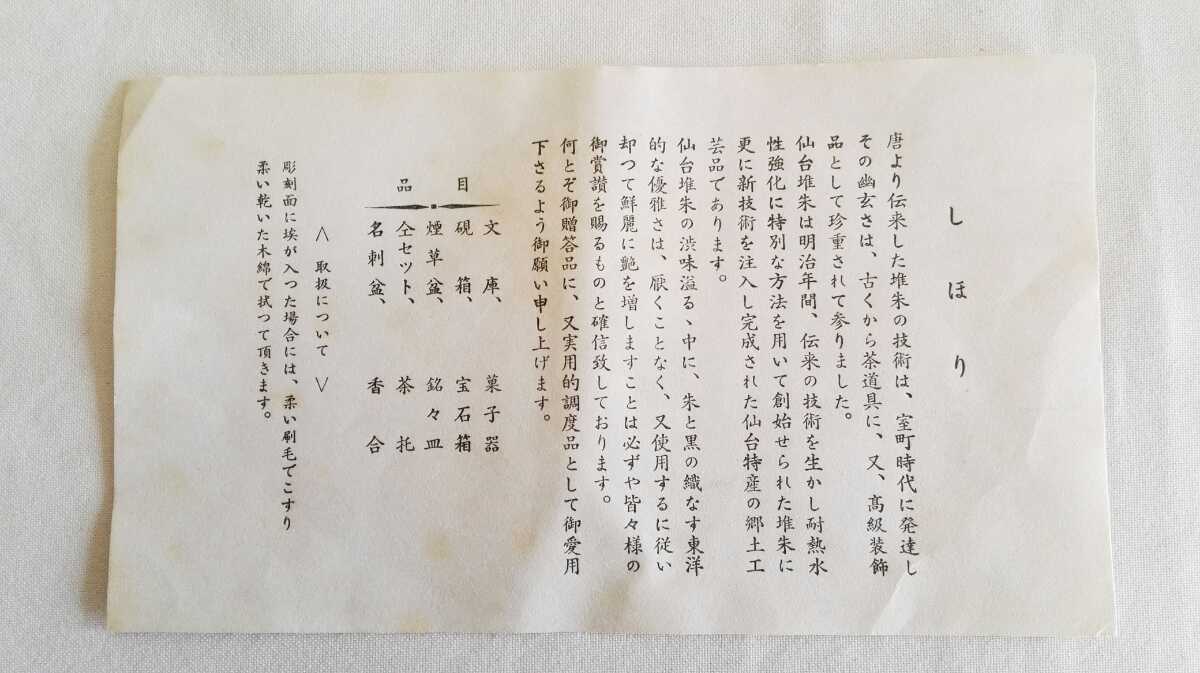 しほり
唐より伝来した堆朱の技術は、室町時代に発達し
その幽玄さは、古くから茶道具に、又、高級装飾
品として珍重されて参りました。
仙台堆朱は明治年間、伝来の技術を生かし耐熱水
性強化に特別な方法を用いて創始せられた堆朱に
更に新技術を注入し完成された仙台特産の郷土工
芸品であります。
仙台堆朱の渋味溢るゝ中に、朱と黒の織なす東洋
的な優雅さは、厭くことなく、又使用するに従い
却つて鮮麗に艶を増しますことは必ずや皆々様の
御賞讃を賜るものと確信致しております。
何とぞ御贈答品に、又実用的調度品として御愛用
下さるよう御願い申し上げます。
品目
文庫、菓子器
硯箱、宝石箱
煙草盆、銘々皿
仝セツト、茶托
名刺盆、香合
＜取扱について＞
彫刻面に埃が入つた場合には、柔い刷毛でこすり
柔い乾いた木綿で拭つて頂きます。